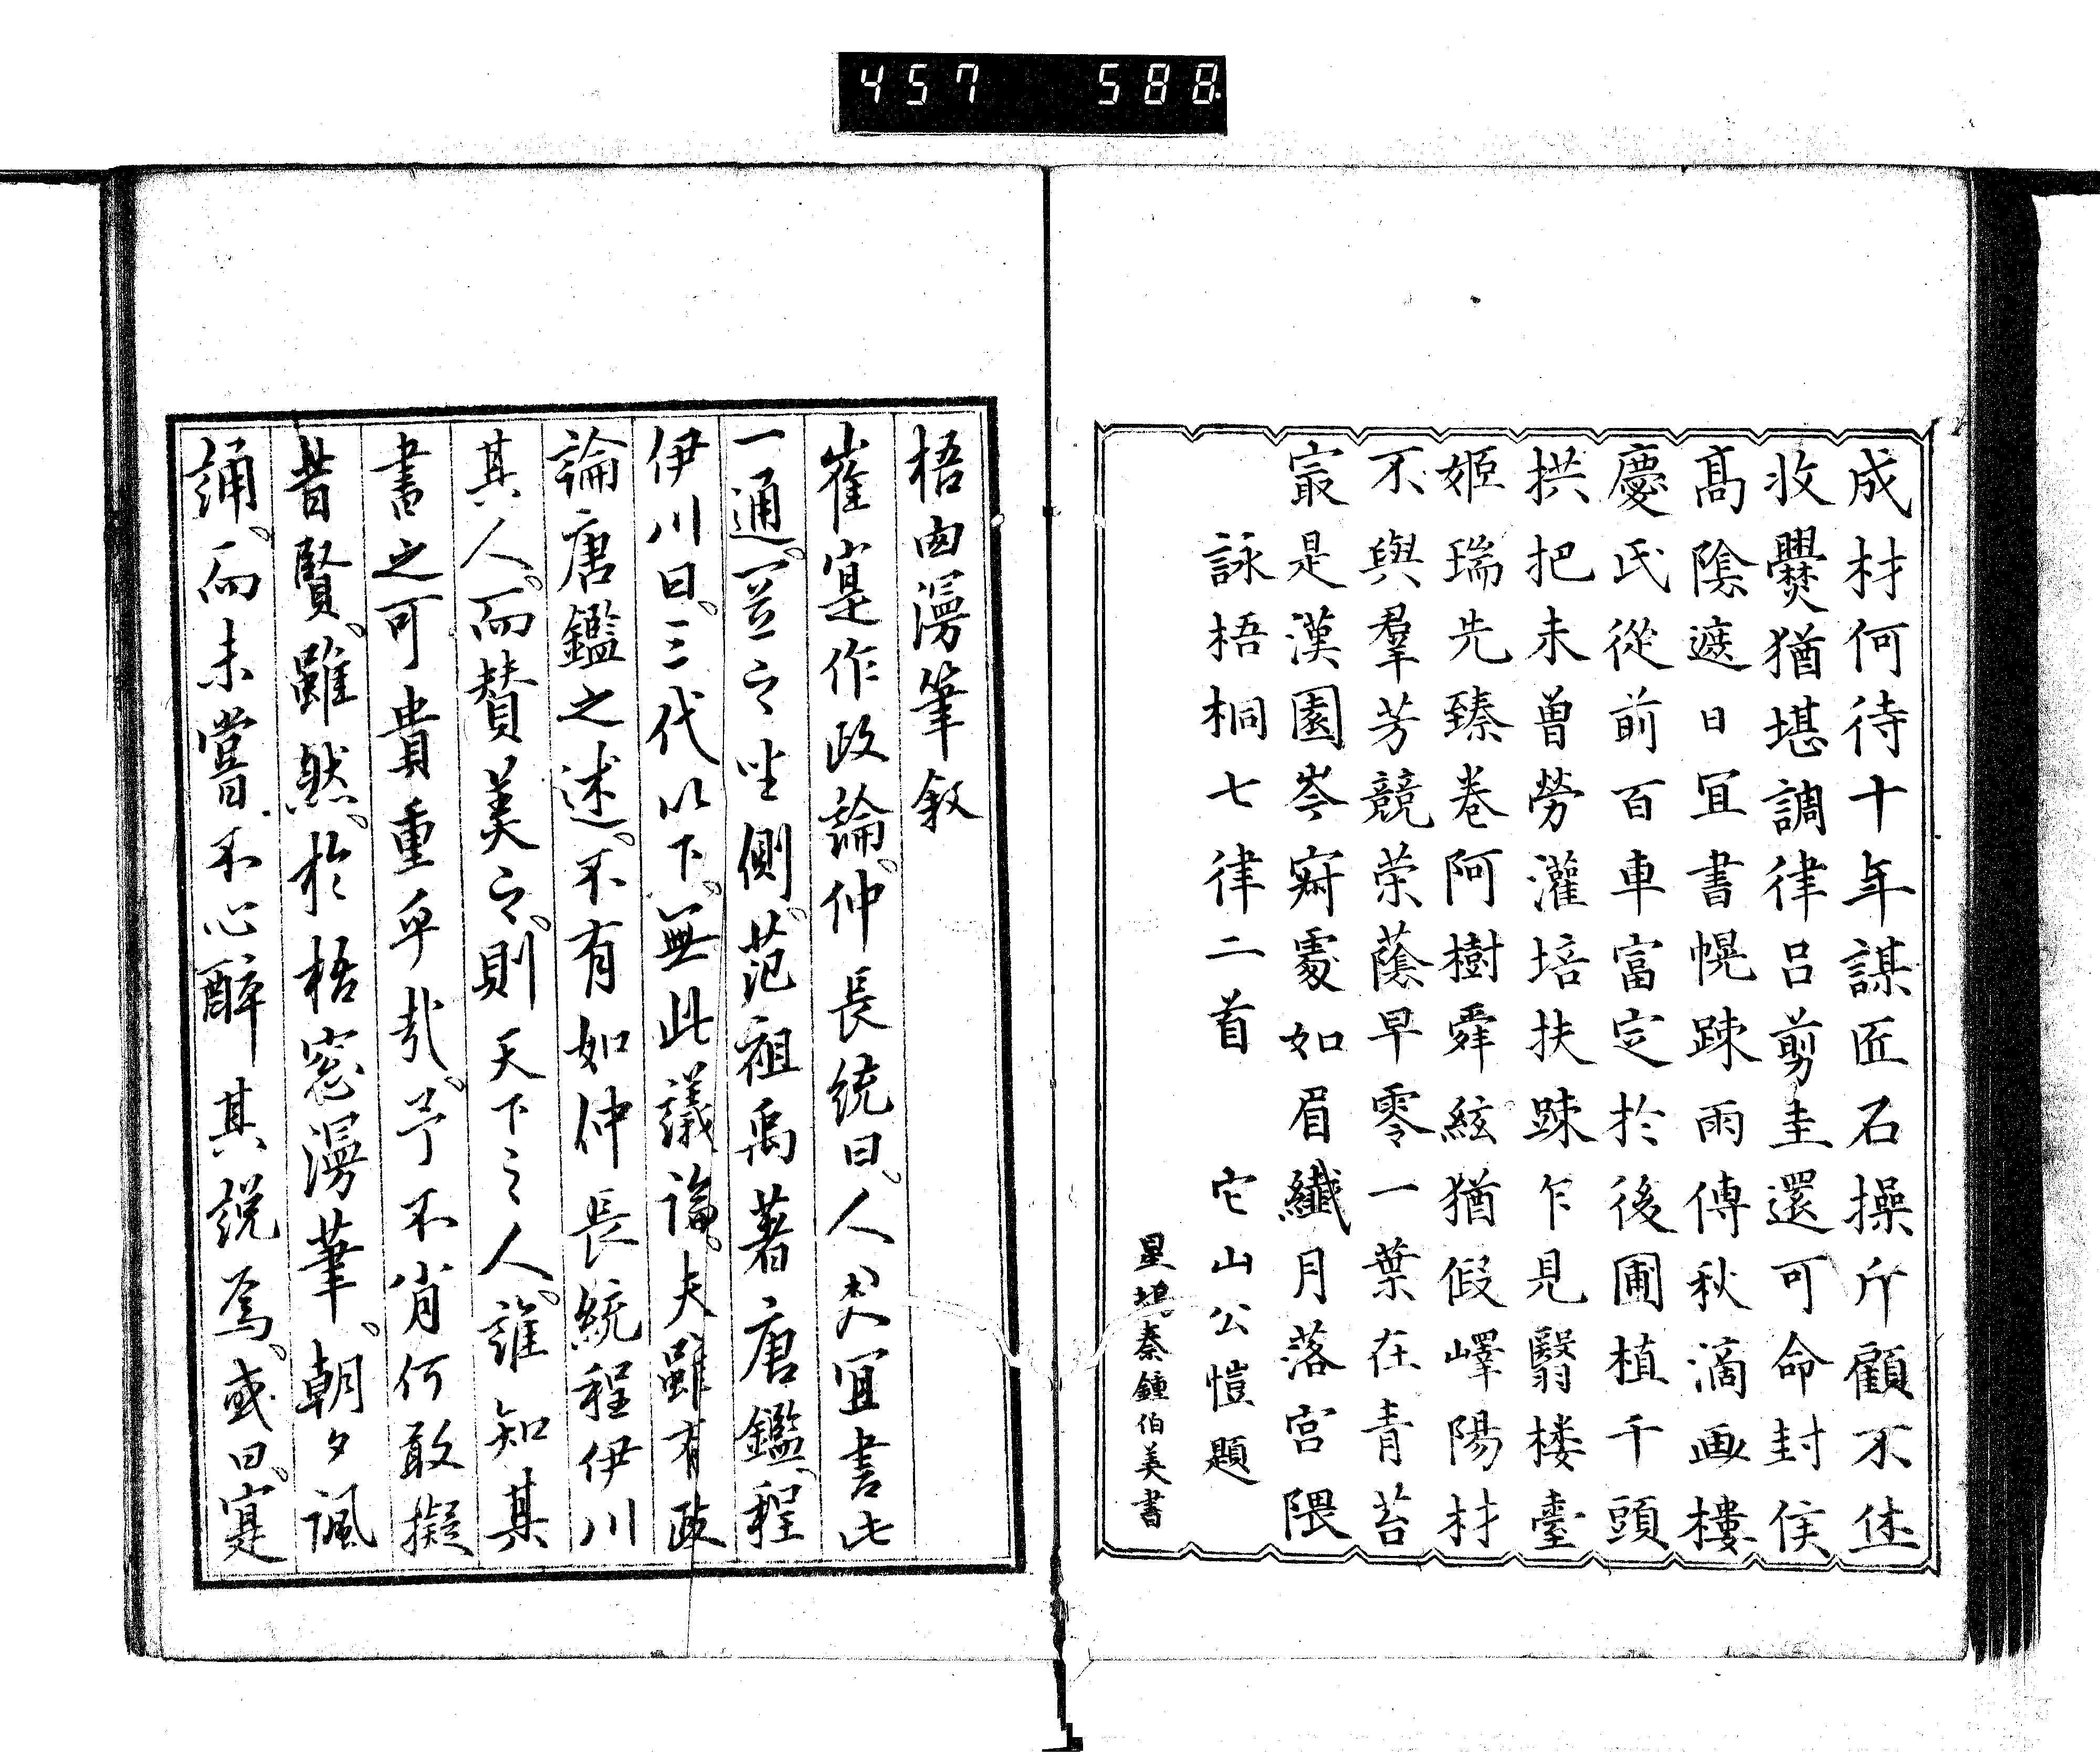 457 588
成材何待十年謀匠石操斤顧不住
收爨猶堪調律呂剪圭還可命封侯
髙陰遮日冝書幌踈雨傳秋滴画樓
慶氏從前百車富定於後圃植千頭
拱把未曽勞灌培扶踈乍見翳楼臺
姬瑞先臻巻阿樹舜絃猶假嶧陽材
不與羣芳競荣蔭早零一葉在青苔
㝡是漢園岑寂處如眉纖月落宮隈
詠梧桐七律二首 它山公愷題
星塢秦鍾伯美書
梧囱漫筆叙
崔寔作政論。仲長統曰。人主冝書此
一通。置之坐側。范祖禹著唐鑑。程
伊川曰。三代以下。無此議論。夫雖有政
論唐鑑之述。不有如仲長統程伊川
其人。而賛美之。則天下之人。誰知其
書之可貴重乎哉。予不肖何敢擬
昔賢。雖然。於梧窓漫筆。朝夕諷
誦。而未嘗不心醉其説焉。或曰。寔